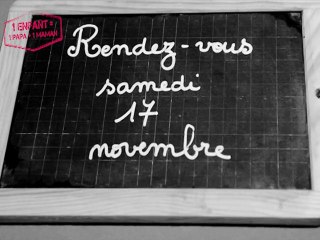 1 ENFANT =
1 PAPA + 1 MAMAN
Rendez-vous
samedi
17
novembre